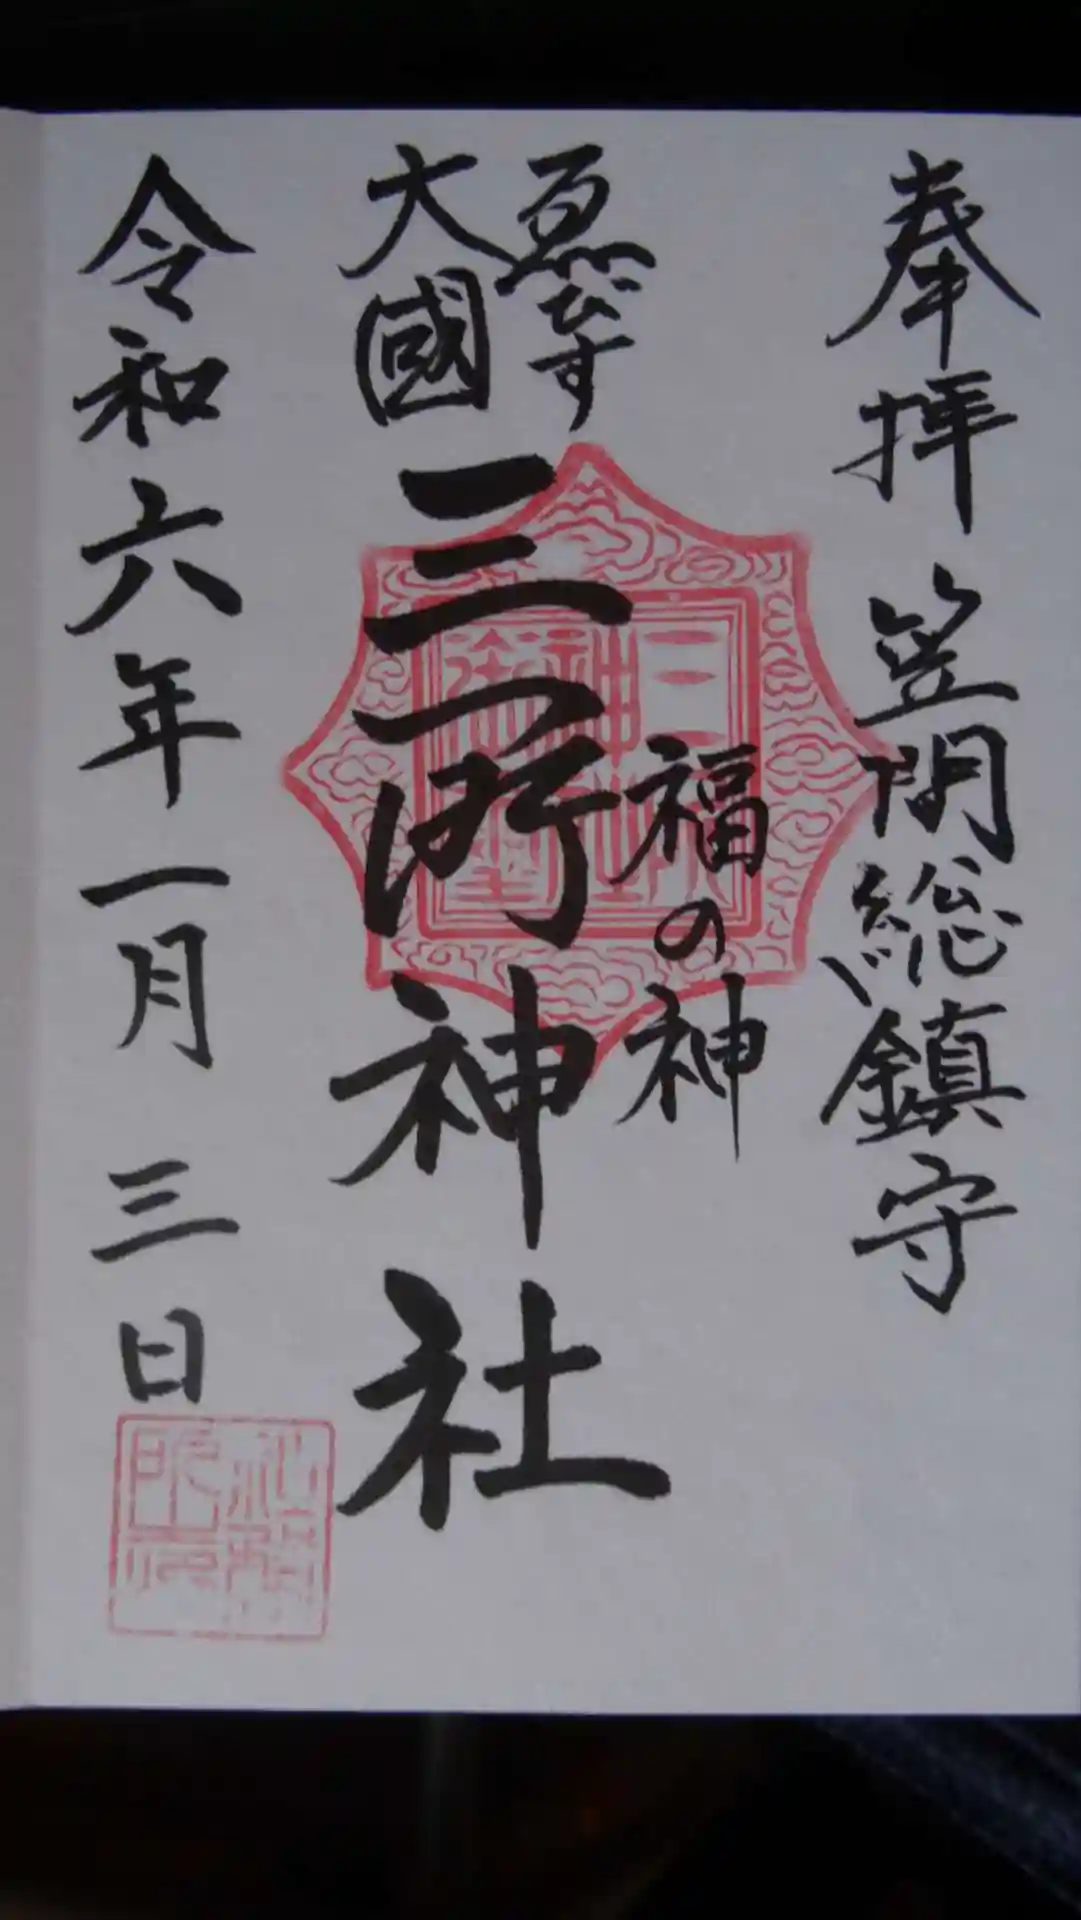 奉拝 笠間総鎮守
福の神
恵びす
大國
三所神社
令和六年一月三日
三所
神社
御璽
社務
所印